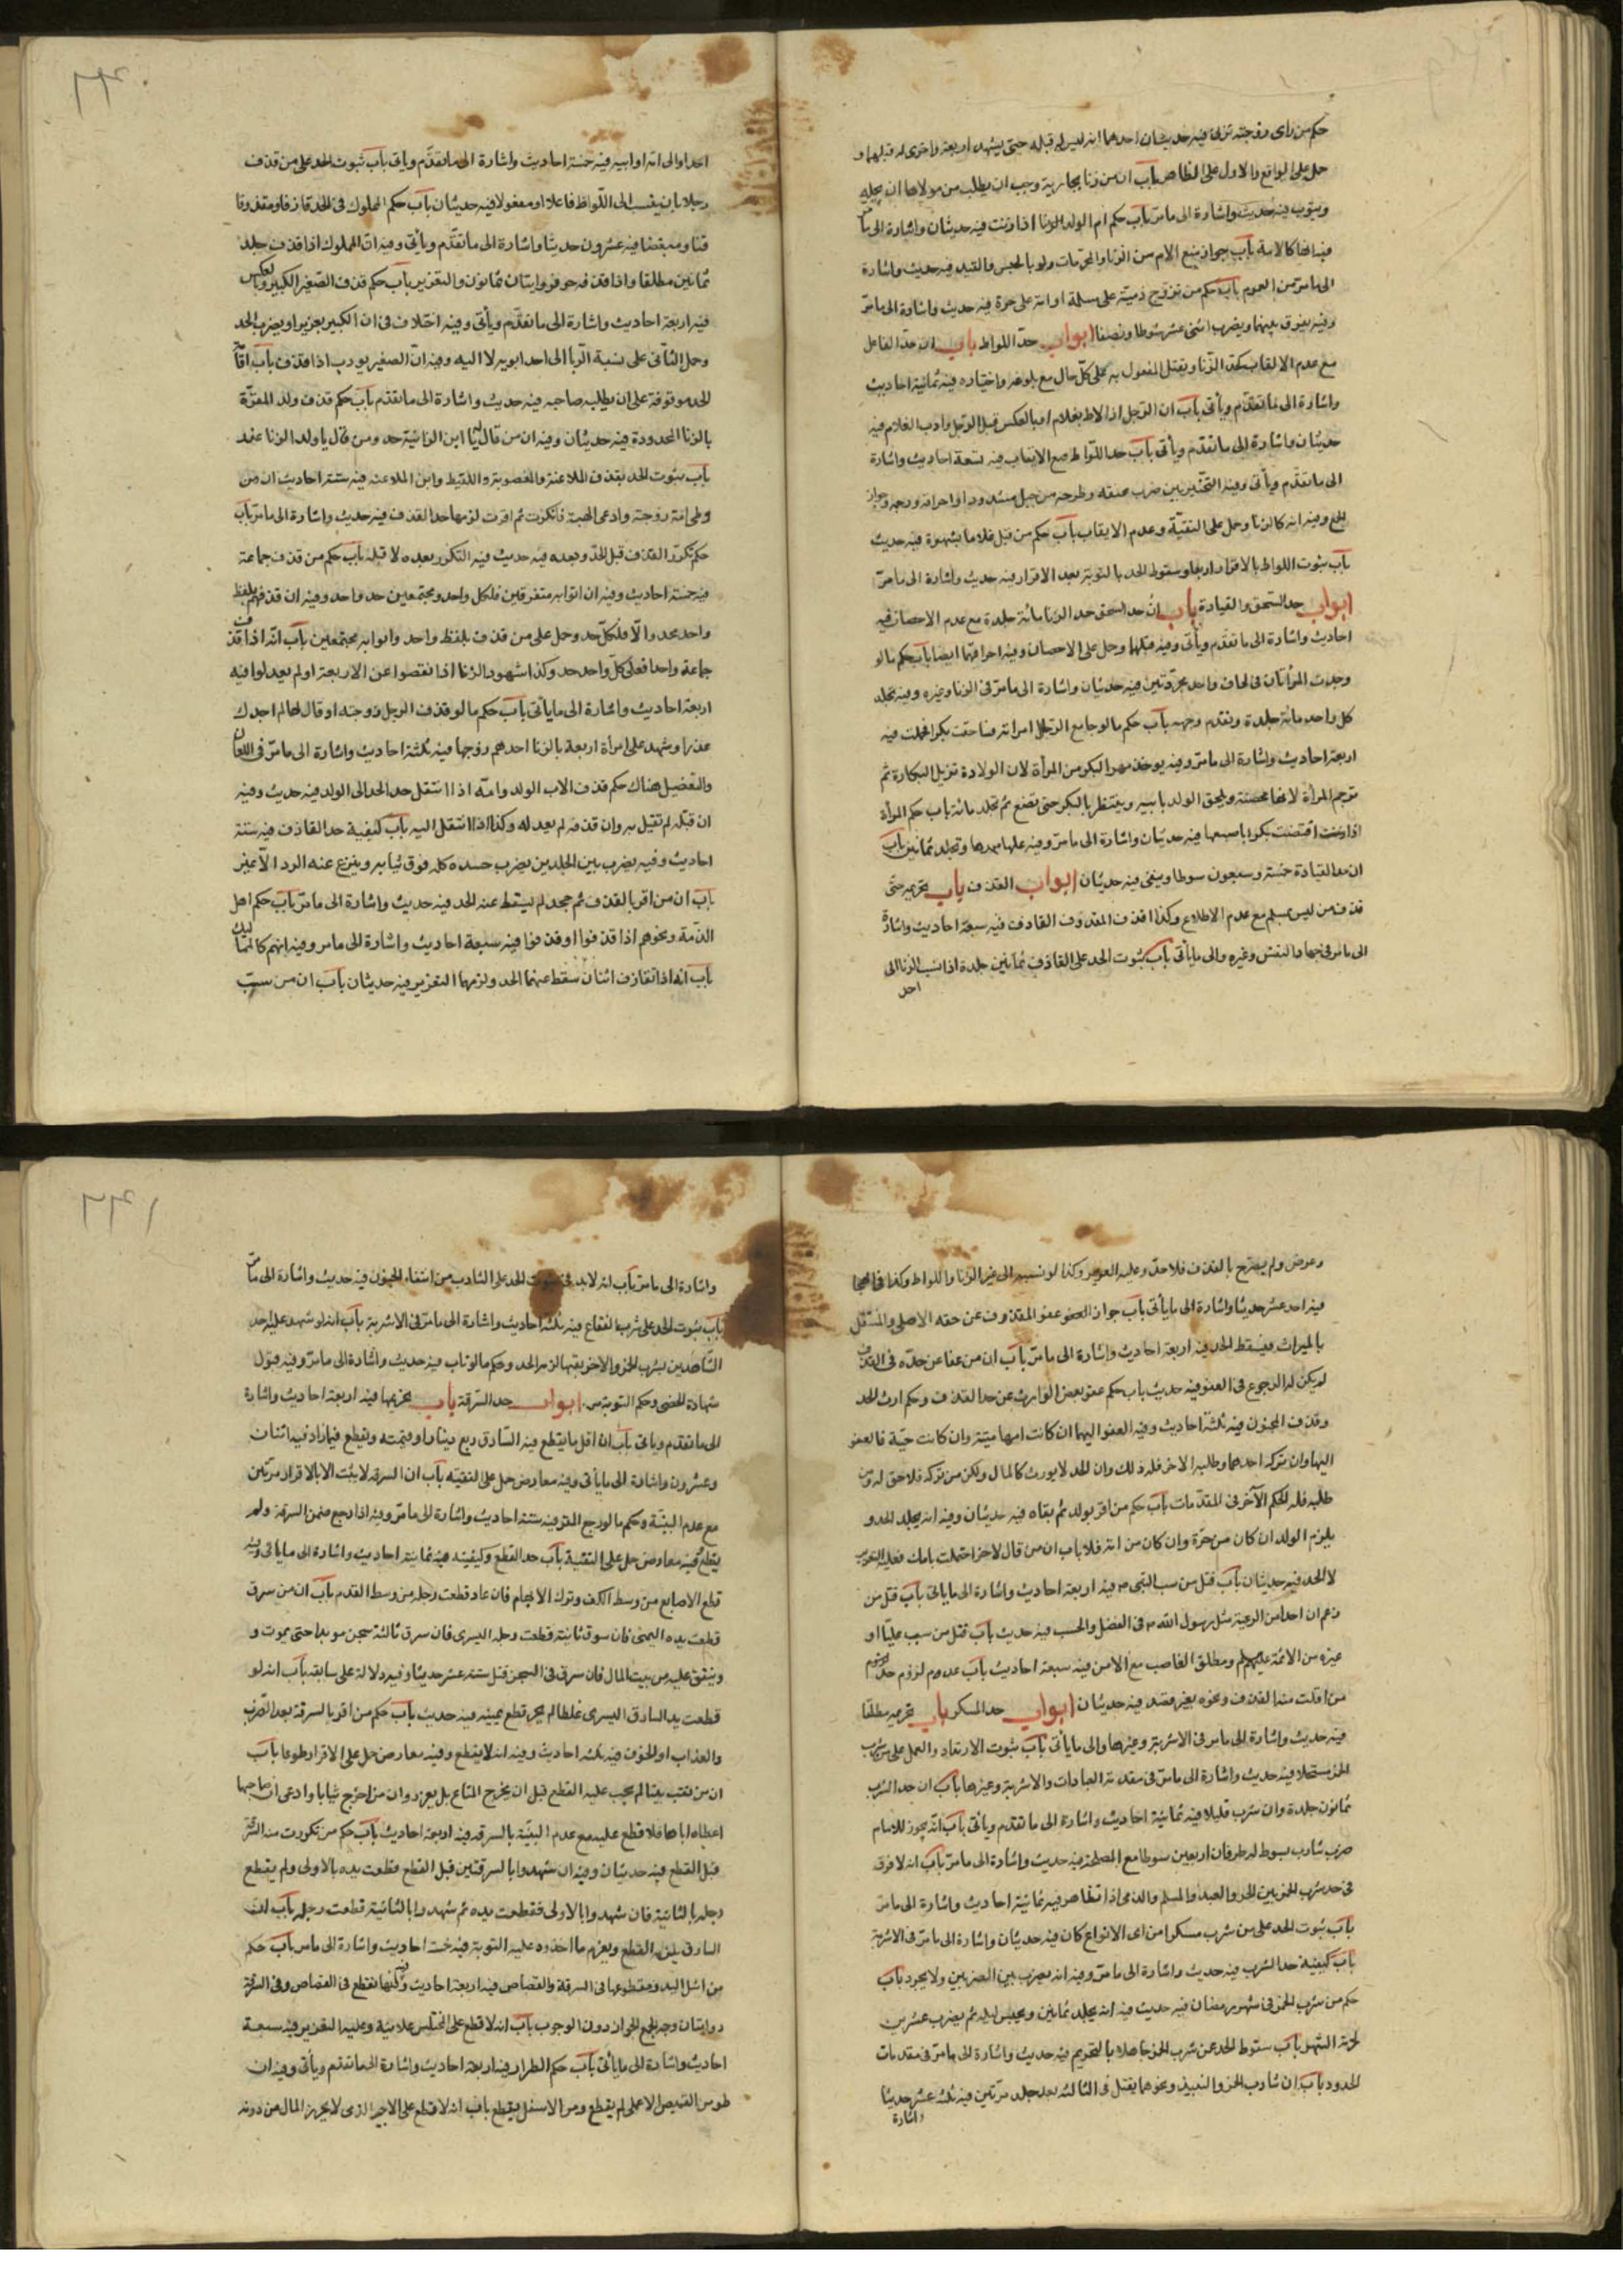 حكم من راى زوجته تزنى فيه حديثان احدهما انه ليس له قبله حتى يشهد اربعة واخرى له قبلهما و
حمل على الواقع والاول على الظاهر باب ان من زنا بجارية وجب ان يطلب من مولاها ان يحله
ويتوب فيه حديث واشارة الى ما مر باب حكم ام الولد اذا زنت فيه حديثان واشارة الى ما مر
فيه انها كالامة باب جواز منع الام من الزنا والمحرمات ولو بالحبس والقيد فيه حديث واشارة
الى ما مر من العموم باب حكم من تزوج ذمية على مسلمة او امة على حرة فيه حديث واشارة الى ما مر
وفيه يفرق بينهما ويضرب اثنى عشر سوطا ونصفا ابواب حد اللواط باب ان حد الفاعل
مع عدم الايقاب كحد الزنا ويقتل المفعول به على كل حال مع بلوغه واختياره فيه ثمانية احاديث
واشارة الى ما تقدم ويأتى باب ان الرجل اذا لاط بغلام او بالعكس قتل الرجل وادب الغلام فيه
حديثان واشارة الى ما تقدم ويأتى باب حد اللواط مع الايقاب فيه تسعة احاديث واشارة
الى ما تقدم ويأتى وفيه التخيير بين ضرب عنقه وطرحه من جبل مشدودا واحراقه ورجمه وجواز
الجمع وفيه انه كالزنا وحمل على التقية وعدم الايقاب باب حكم من قبل غلاما بشهوة فيه حديث
باب ثبوت اللواط بالاقرار اربعا وسقوط الحد بالتوبة بعد الاقرار فيه حديث واشارة الى ما مر
ابواب حد السحق والقيادة باب ان حد السحق حد الزنا مائة جلدة مع عدم الاحصان فيه
احاديث واشارة الى ما تقدم ويأتى وفيه قتلها وحمل على الاحصان وفيه احراقهما ايضا باب حكم ما لو
وجدت المرأتان فى لحاف واحد مجردتين فيه حديثان واشارة الى ما مر فى الزنا وغيره وفيه تجلد
كل واحدة مائة جلدة وتقدم وجهه باب حكم ما لو جامع الرجل امراته فساحقت بكرا فحملت فيه
اربعة احاديث واشارة الى ما مر وفيه يوخذ مهر البكر من المرأة لان الولادة تزيل البكارة ثم
ترجم المرأة لانها محصنة ويلحق الولد بابيه وينتظر بالبكر حتى تضع ثم تجلد مائة باب حكم المرأة
اذا اقتضت بكرا باصبعها فيه حديثان واشارة الى ما مر وفيه عليها مهرها وتجلد ثمانين باب
ان حد القيادة خمسة وسبعون سوطا وينفى فيه حديثان ابواب القذف باب تحريمه حتى
قذف من ليس بمسلم مع عدم الاطلاع وكذا قذف المقذوف القاذف فيه سبعة احاديث واشارة
الى ما مر فى جهاد النفس وغيره والى ما يأتى باب ثبوت الحد على القاذف ثمانين جلدة اذا نسب الزنا الى
احد
احدا والى امه او ابيه فيه خمسة احاديث واشارة الى ما تقدم وياتى باب ثبوت الحد على من قذف
رجلا بان ينسب الى اللواط فاعلا او مفعولا فيه حديثان باب حكم المملوك فى الحد قاذفا ومقذوفا
قنا ومبعضا فيه عشرون حديثا واشارة الى ما تقدم ويأتى وفيه ان المملوك اذا قذف جلد
ثمانين مطلقا واذا قذفه حر فروايتان ثمانون والتعزير باب حكم قذف الصغير الكبير وبالعكس
فيه اربعة احاديث واشارة الى ما تقدم ويأتى وفيه اختلاف فى ان الكبير يعزر او يضرب الحد
وحمل الثانى على نسبة الزنا الى احد ابويه لا اليه وفيه ان الصغير يودب اذا قذف باب اقامة
الحد موقوفة على ان يطلبه صاحبه فيه حديث واشارة الى ما تقدم باب حكم قذف ولد المقرة
بالزنا المحدودة فيه حديثان وفيه ان من قال له يا ابن الزانية حد ومن قال يا ولد الزنا عزر
باب ثبوت الحد بقذف الملاعنة والمغصوبة واللقيط وابن الملاعنة فيه ستة احاديث ان من
وطى امة زوجته وادعى الهبة فانكرت ثم اقرت لزمها حد القذف فيه حديث واشارة الى ما مر باب
حكم تكرر القذف قبل الحد وبعده فيه حديث فيه التكرر بعده لا قبله باب حكم من قذف جماعة
فيه خمسة احاديث وفيه ان اتوا به متفرقين فلكل واحد ومجتمعين حد واحد وفيه ان قذفهم بلفظ
واحد محد والا فلكل حد وحمل على من قذف بلفظ واحد واتوا به مجتمعين باب انه اذا قذف
جماعة واحدا فعلى كل واحد حد وكذا شهود الزنا اذا نقصوا عن الاربعة او لم يعدلوا فيه
اربعة احاديث واشارة الى ما يأتى باب حكم ما لو قذف الرجل زوجته او قال لها لم اجدك
عذراء وشهد على امرأة اربعة بالزنا احدهم زوجها فيه ثلثة احاديث واشارة الى ما مر فى اللعان
والتفصيل هناك حكم قذف الاب الولد وامه اذا انتقل حد الحد الى الولد فيه حديث وفيه
ان قتله لم يقتل به وان قذفه لم يعد له وكذا اذا انتقل اليه باب كيفية حد القاذف فيه ستة
احاديث وفيه يضرب بين الجلدين يضرب جسده كله فوق ثيابه وينزع عنه الردا لا غير
باب ان من اقر بالقذف ثم جحد لم يسقط عنه الحد فيه حديث واشارة الى ما مر باب حكم اهل
الذمة ونحوهم اذا قذفوا او قذفوا فيه سبعة احاديث واشارة الى ما مر وفيه انهم كالمماليك
باب انه اذا تقاذف اثنان سقط عنهما الحد ولزمهما التعزير فيه حديثان باب ان من سب
وعرض ولم يصرح بالقذف فلا حد وعليه التعزير وكذا لو نسبه الى غير الزنا واللواط وكذا فى الهجا
فيه احد عشر حديثا واشارة الى ما يأتى باب جواز العفو عفو المقذوف عن حقه الاصلى والمنتقل
بالميراث فيسقط الحد فيه اربعة احاديث واشارة الى ما مر باب ان من عفا عن حده فى القذف
لم يكن له الرجوع فى العفو فيه حديث باب حكم عفو بعض الوارث عن حد القذف وحكم ارث الحد
وقذف المجنون فيه ثلثة احاديث وفيه العفو اليهما ان كانت امها ميتة وان كانت حية فالعفو
اليها وان تركه احدهما وطلبه الاخر فله ذلك وان الحد لا يورث كالمال ولكن من تركه فلا حق له ومن
طلبه فله الحكم الآخر فى المقدمات باب حكم من اقر بولد ثم نفاه فيه حديثان وفيه انه يجلد الحد و
يلزم الولد ان كان من حرة وان كان من امة فلا باب ان من قال لاخر احتلمت بامك فعليه التعزير
لا الحد فيه حديثان باب قتل من سب النبى ص فيه اربعة احاديث واشارة الى ما يأتى باب قتل من
زعم ان احدا من الرعية مثل رسول الله ص فى الفضل والحسب فيه حديث باب قتل من سب عليا او
غيره من الائمة عليهم السلم ومطلق الناصب مع الامن فيه سبعة احاديث باب عدم لزوم حد
من افلت منه القذف ونحوه بغير قصد فيه حديثان ابواب حد المسكر باب تحريمه مطلقا
فيه حديث واشارة الى ما مر فى الاشربة وغيرها والى ما يأتى باب ثبوت الارتداد والعمل على شرب
الخمر مستحلا فيه حديث واشارة الى ما مر فى مقدمة العبادات والاشربة وغيرها باب ان حد الشرب
ثمانون جلدة وان شرب قليلا فيه ثمانية احاديث واشارة الى ما تقدم ويأتى باب انه يجوز للامام
ضرب شارب بسوط له طرفان اربعين سوطا مع المصلحة فيه حديث واشارة الى ما مر باب انه لا فرق
فى حد شرب الخمر بين الحر والعبد والمسلم والذمى اذا تظاهر فيه ثمانية احاديث واشارة الى ما مر
باب ثبوت الحد على من شرب مسكرا من اى الانواع كان فيه حديثان واشارة الى ما مر فى الاشربة
باب كيفية حد الشرب فيه حديث واشارة الى ما مر وفيه انه يضرب بين الضربين ولا يجرد باب
حكم من شرب الخمر فى شهر رمضان فيه حديث فيه انه يجلد ثمانين ويحبس ليلة ثم يضرب عشرين
لحرمة الشهر باب سقوط الحد عن شرب الخمر جاهلا بالتحريم فيه حديث واشارة الى ما مر فى مقدمات
الحدود باب ان شارب الخمر والنبيذ ونحوهما يقتل فى الثالثة بعد جلد مرتين فيه ثلثة عشر حديثا
واشارة
واشارة الى ما مر باب انه لا بد فى ثبوت الحد على الشارب من انتفاء الجنون فيه حديث واشارة الى ما مر
باب ثبوت الحد على شرب الفقاع فيه ثلثة احاديث واشارة الى ما مر فى الاشربة باب انه لو شهد عليه احد
الشاهدين بشرب الخمر والاخر بقيئها لزم الحد وحكم ما لو تاب فيه حديث واشارة الى ما مر وفيه قبول
شهادة الخصى وحكم التوبة مر ابواب حد السرقة باب تحريمها فيه اربعة احاديث واشارة
الى ما تقدم وياتى باب ان اقل ما يقطع فيه السارق ربع دينار او قيمته ويقطع فيما زاد فيه اثنان
وعشرون واشارة الى ما يأتى وفيه معارض حمل على التقية باب ان السرقة لا يثبت الا بالاقرار مرتين
مع عدم البينة وحكم ما لو رجع المقر فيه ستة احاديث واشارة الى ما مر وفيه اذا رجع ضمن السرقة ولم
يقطع وفيه معارض حمل على التقية باب حد القطع وكيفيته فيه ثمانية احاديث واشارة الى ما ياتى وفيه
قطع الاصابع من وسط الكف وترك الابهام فان عاد قطعت رجله من وسط القدم باب ان من سرق
قطعت يده اليمنى فان سرق ثانية قطعت رجله اليسرى فان سرق ثالثة سجن موبدا حتى يموت و
وينفق عليه من بيت المال فان سرق فى السجن قتل ستة عشر حديثا وفيه دلالة على سابقه باب انه لو
قطعت يد السارق اليسرى غلطا لم يجز قطع يمينه فيه حديث باب حكم من اقر بالسرقة بعد الضرب
والعذاب او الخوف فيه ثلثة احاديث وفيه انه لا يقطع وفيه معارض حمل على الاقرار طوعا باب
ان من نقب بيتا لم يجب عليه القطع قبل ان يخرج المتاع بل يعزر وان من اخرج ثيابا وادعى ان صاحبها
اعطاه اياها فلا قطع عليه مع عدم البينة بالسرقة فيه اربعة احاديث باب حكم من تكررت منه السرقة
قبل القطع فيه حديثان وفيه ان شهدوا بالسرقتين قبل القطع قطعت يده بالاولى ولم يقطع
رجله بالثانية فان شهدوا بالاولى فقطعت يده ثم شهدوا بالثانية قطعت رجله باب ان
السارق يلزمه القطع ويغرم ما اخذ وعليه التوبة فيه خمسة احاديث واشارة الى ما مر باب حكم
من اشل اليد ومقطوعها فى السرقة والقصاص فيه اربعة احاديث وفيه انها تقطع فى القصاص وفى السرقة
روايتان وجه الجمع الجواز دون الوجوب باب انه لا قطع على المختلس علانية وعليه التعزير فيه سبعة
احاديث واشارة الى ما يأتى باب حكم الطرار فيه اربعة احاديث واشارة الى ما تقدم ويأتى وفيه ان
طر من القميص الاعلى لم يقطع ومن الاسفل يقطع باب انه لا قطع على الاجير الذى لا يحرز المال من دونه